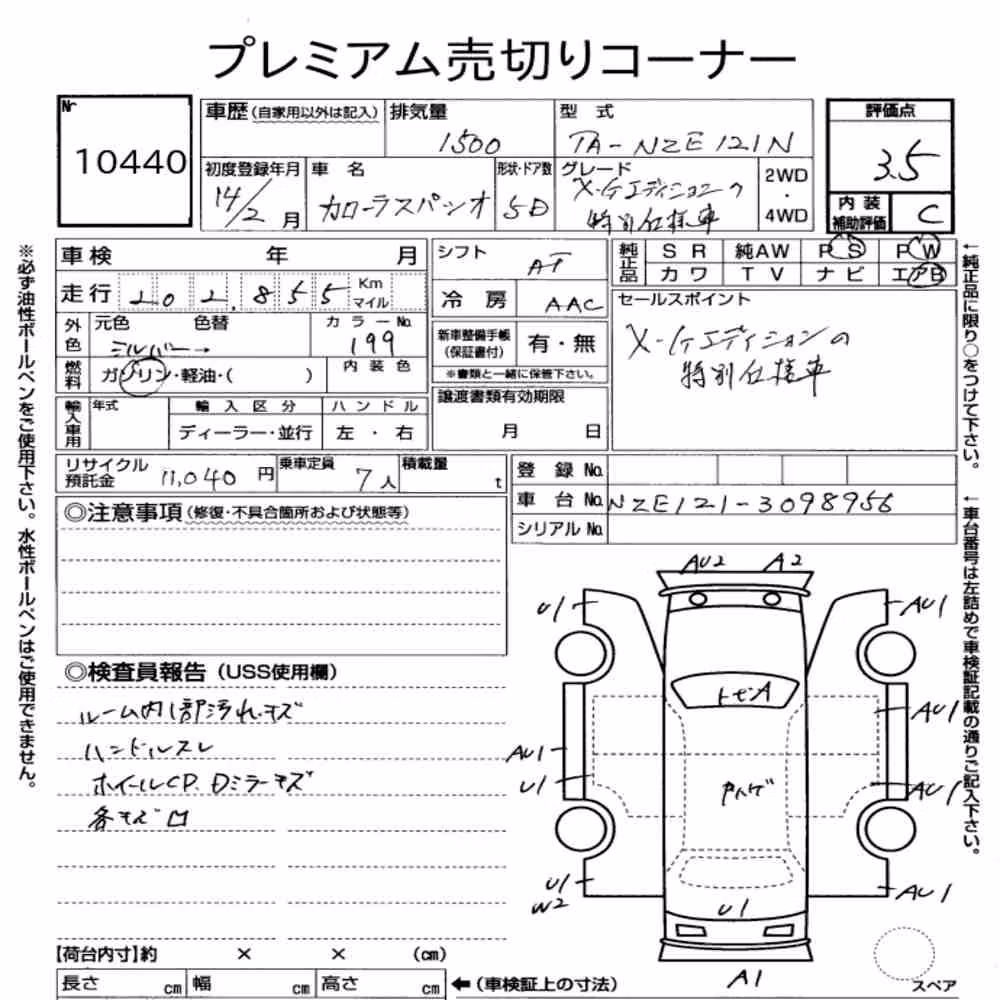 プレミアム売切りコーナー
Nr
10440
車歴 (自家用以外は記入)
排気量
1500
型 式
TA-NZE121N
評価点
3.5
初度登録年月
14/2 月
車 名
カローラスパシオ
形状・ドア数
5D
グレード
X-Gエディションの
特別仕様車
2WD
・
4WD
内 装
補助評価
C
車検 年 月
シフト
AT
純正品
S R 純AW P S P W
カワ T V ナビ エアB
走行 202,855 Km
マイル
冷 房
AAC
セールスポイント
X-Gエディションの
特別仕様車
外色
元色 色替
シルバー→
カラーNo.
199
新車整備手帳
(保証書付)
有・無
※書類と一緒に保管下さい。
燃料
ガソリン・軽油・( )
内 装 色
輸入車用
年式
輸 入 区 分
ハ ン ド ル
ディーラー・並行
左 ・ 右
譲渡書類有効期限
月 日
リサイクル
預託金
11,040 円
乗車定員
7人
積載量
t
登 録 No.
車 台 No.
NZE121-3098956
シリアル No.
◎注意事項 (修復・不具合箇所および状態等)
◎検査員報告 (USS使用欄)
ルーム内1部汚れ・キズ
ハンドルスレ
ホイールCP. Dミラーキズ
各キズ凹
【荷台内寸】約 × × (cm)
長さ cm 幅 cm 高さ cm
←(車検証上の寸法)
AU2 A2
U1 AU1
トビA
AU1 AU1
U1 AU1
U1
W2
AU1
U1
A1
スペア
※必ず油性ボールペンをご使用下さい。水性ボールペンはご使用できません。
←純正品に限り○をつけて下さい。
←車台番号は左詰めで車検証記載の通りご記入下さい。